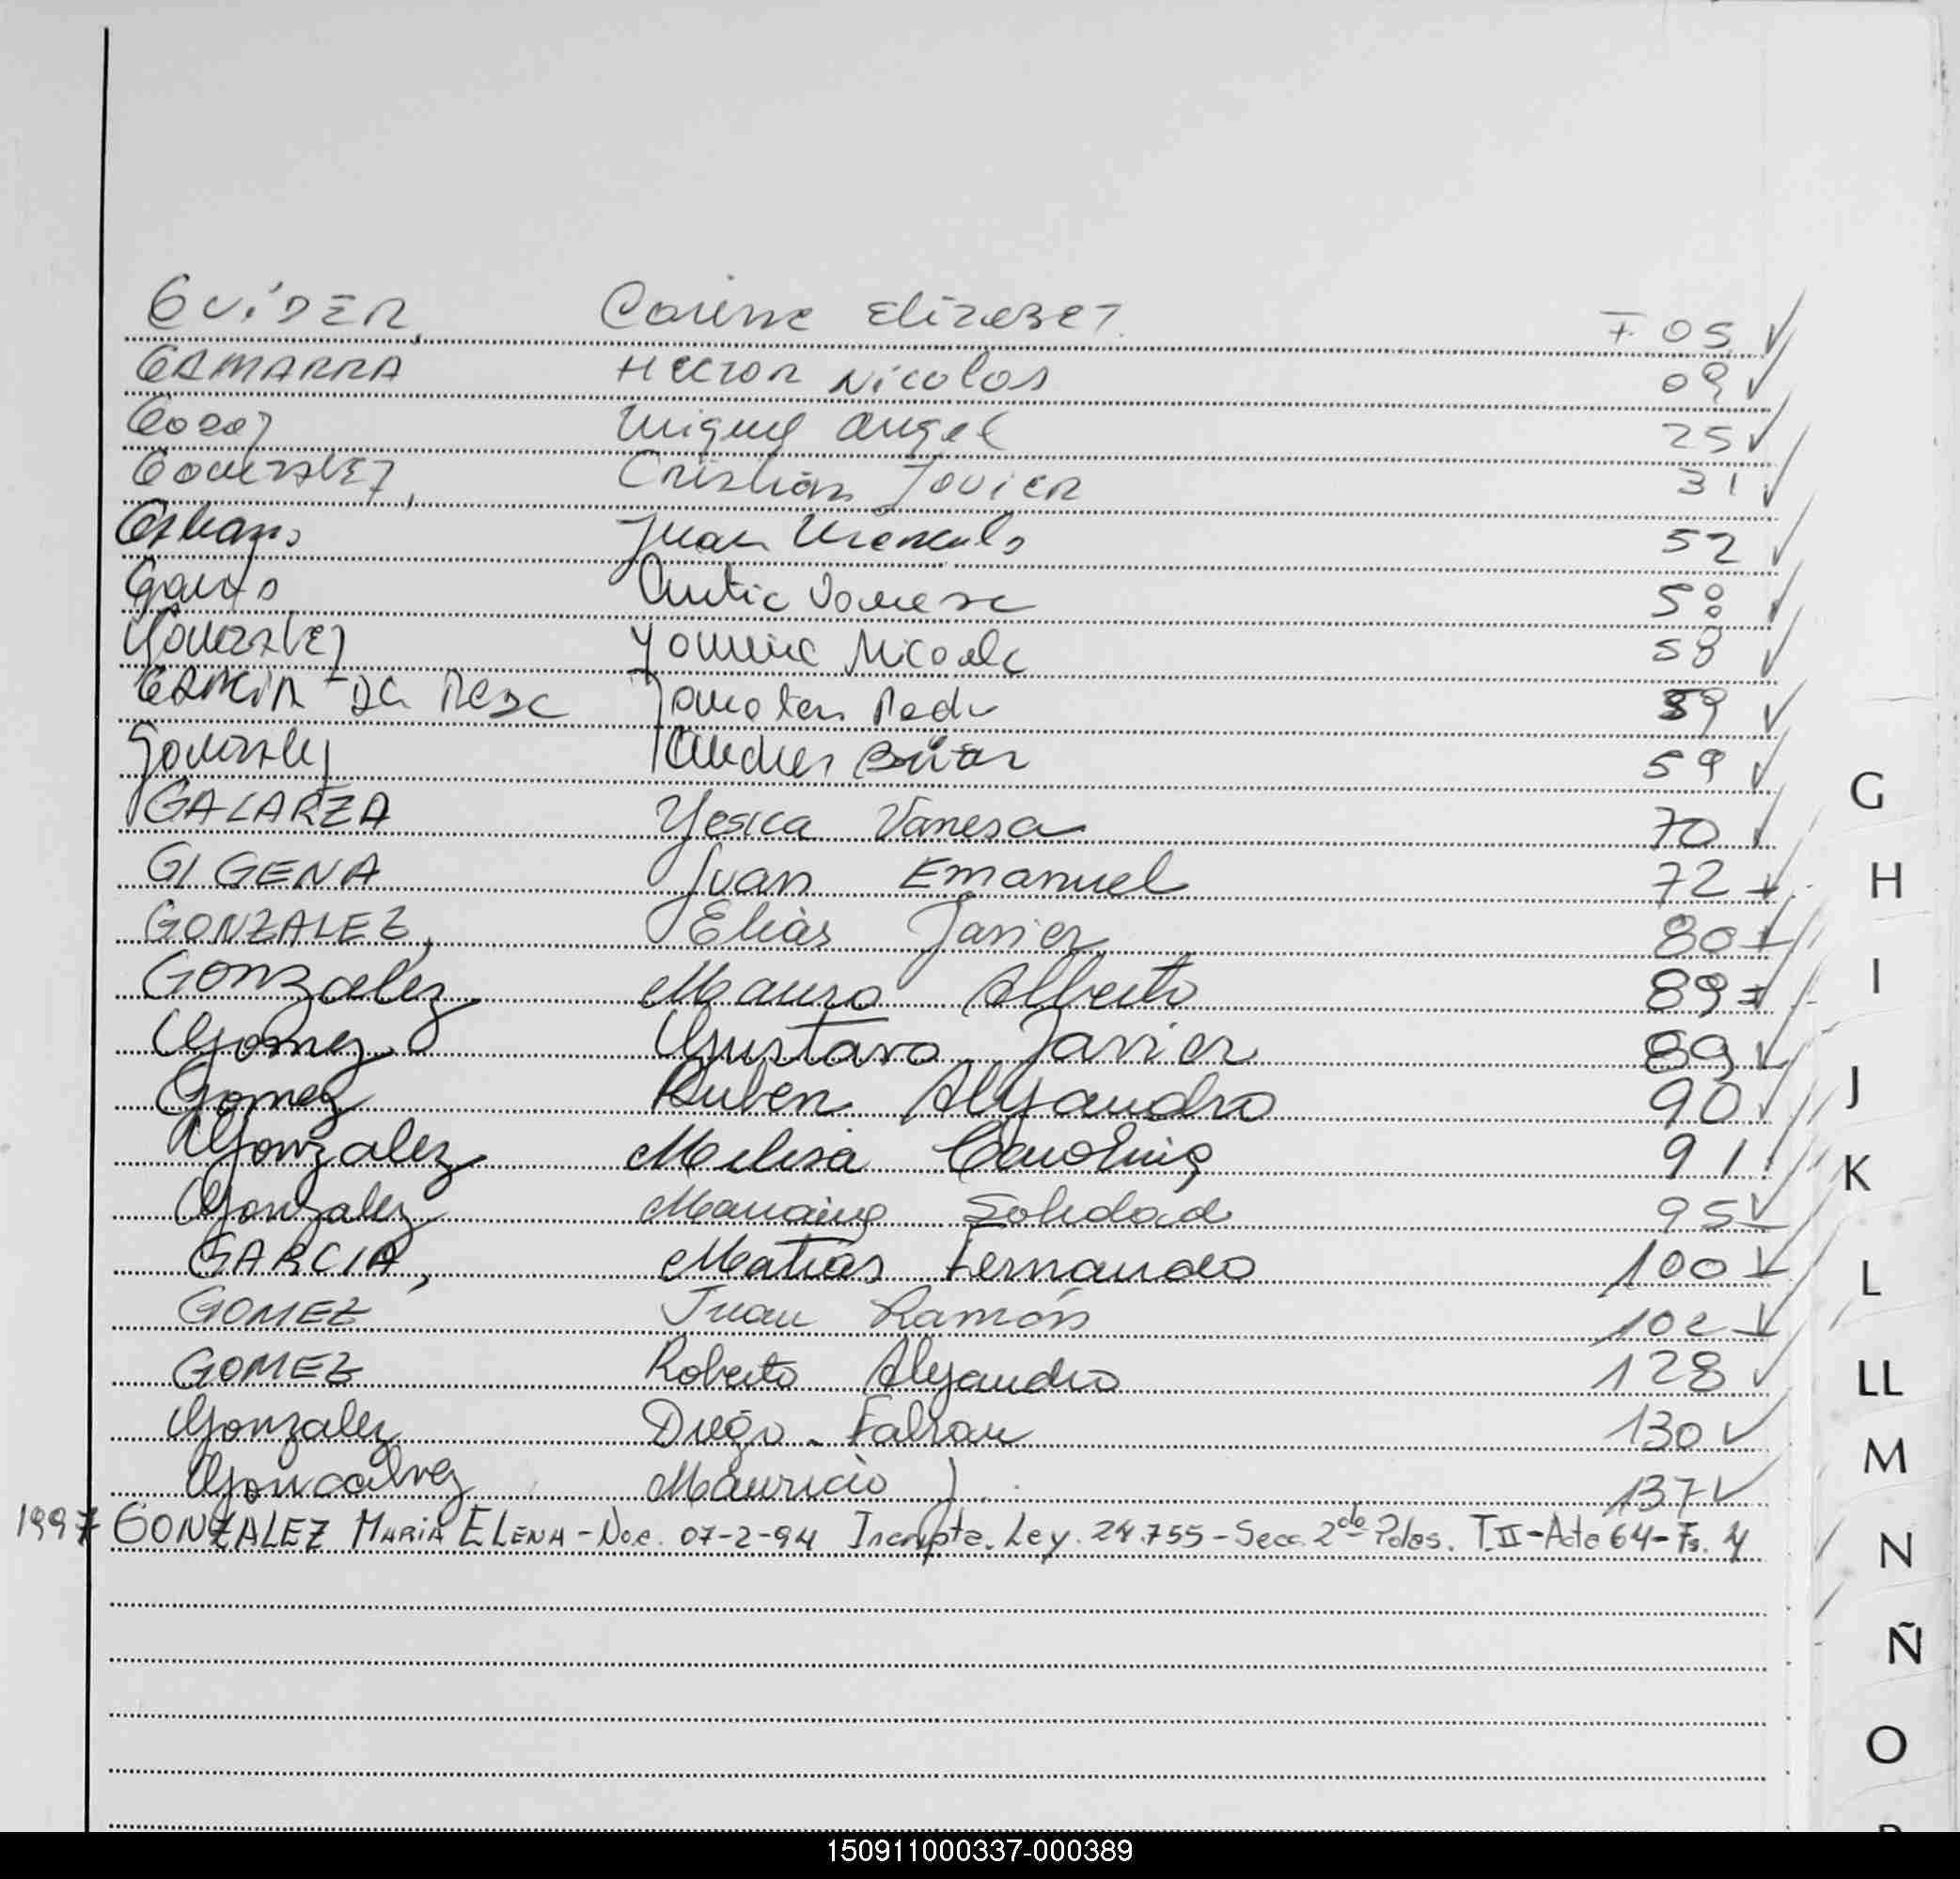 GUIDER, Carina Elizabet F 05 ✓
GAMARRA Hector Nicolas 09 ✓
Miguel Angel 25 ✓
Gonzalez, Cristian Javier 31 ✓
Juan 52 ✓
58 ✓
Gonzalez Nicole 58 ✓
GARCIA 59 ✓
Gonzalez Andres 59 ✓
GALARZA Yesica Vanesa 70 ✓
GIGENA Juan Emanuel 72 ✓
GONZALEZ, Elias Javier 80 ✓
Gonzalez Mauro Alberto 89 ✓
Gomez Gustavo Javier 89 ✓
Gomez Ruben Alejandro 90 ✓
Gonzalez Melisa Carolina 91
Gonzalez Soledad 95 ✓
GARCIA, Matias Fernando 100 ✓
GOMEZ Juan Ramón 102 ✓
GOMEZ Roberto Alejandro 128 ✓
Gonzalez Diego - Fabian 130 ✓
Goncalvez Mauricio J. 137 ✓
1997 GONZALEZ MARIA ELENA - Nac. 07-2-94 Inscripta. Ley. 24.755 - Secc. 2da Pdas. T. II - Acta 64 - Fs. 4
G
H
I
J
K
L
LL
M
N
Ñ
O
150911000337-000389